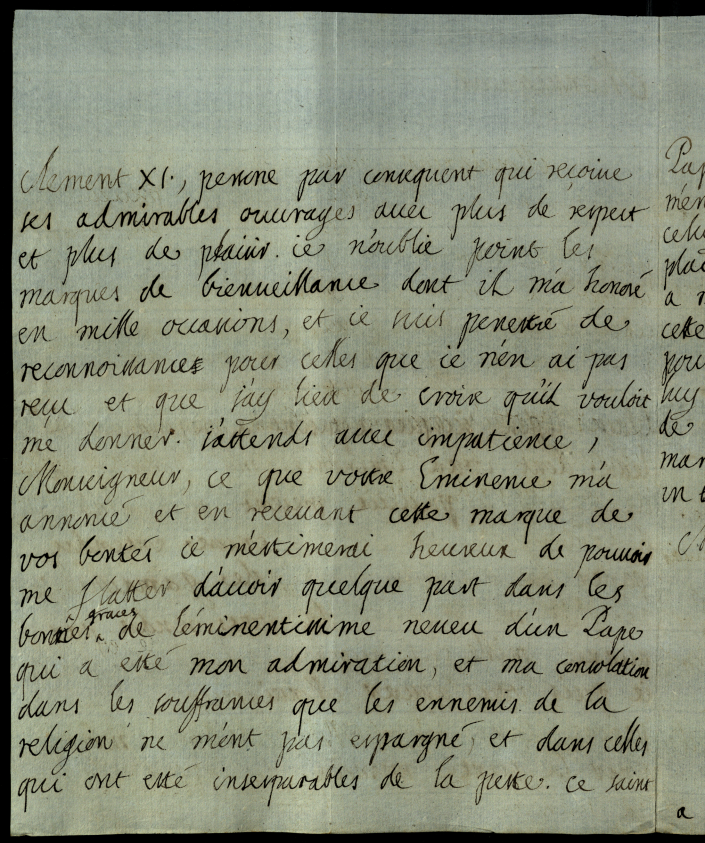 Clement XI., persone par consequent qui reçoive
ses admirables ouvrages avec plus de respect
et plus de plaisir. ie n'oublie point les
marques de bienveillance dont il m'a honoré
en mille occasions, et ie suis penetré de
reconnoissance pour celles que ie n'en ai pas
reçu et que j'ay lieu de croire qu'il vouloit
me donner. j'attends avec impatience,
Monseigneur, ce que vostre Eminence m'a
annoncé et en recevant cette marque de
vos bontés ie m'estimerai heureux de pouvoir
me flatter d'avoir quelque part dans les
bonnes graces de l'éminentissime neveu d'un Pape
qui a esté mon admiration, et ma consolation
dans les souffrances que les ennemis de la
religion ne m'ont pas espargné, et dans celles
qui ont esté inseparables de la peste. ce saint
a